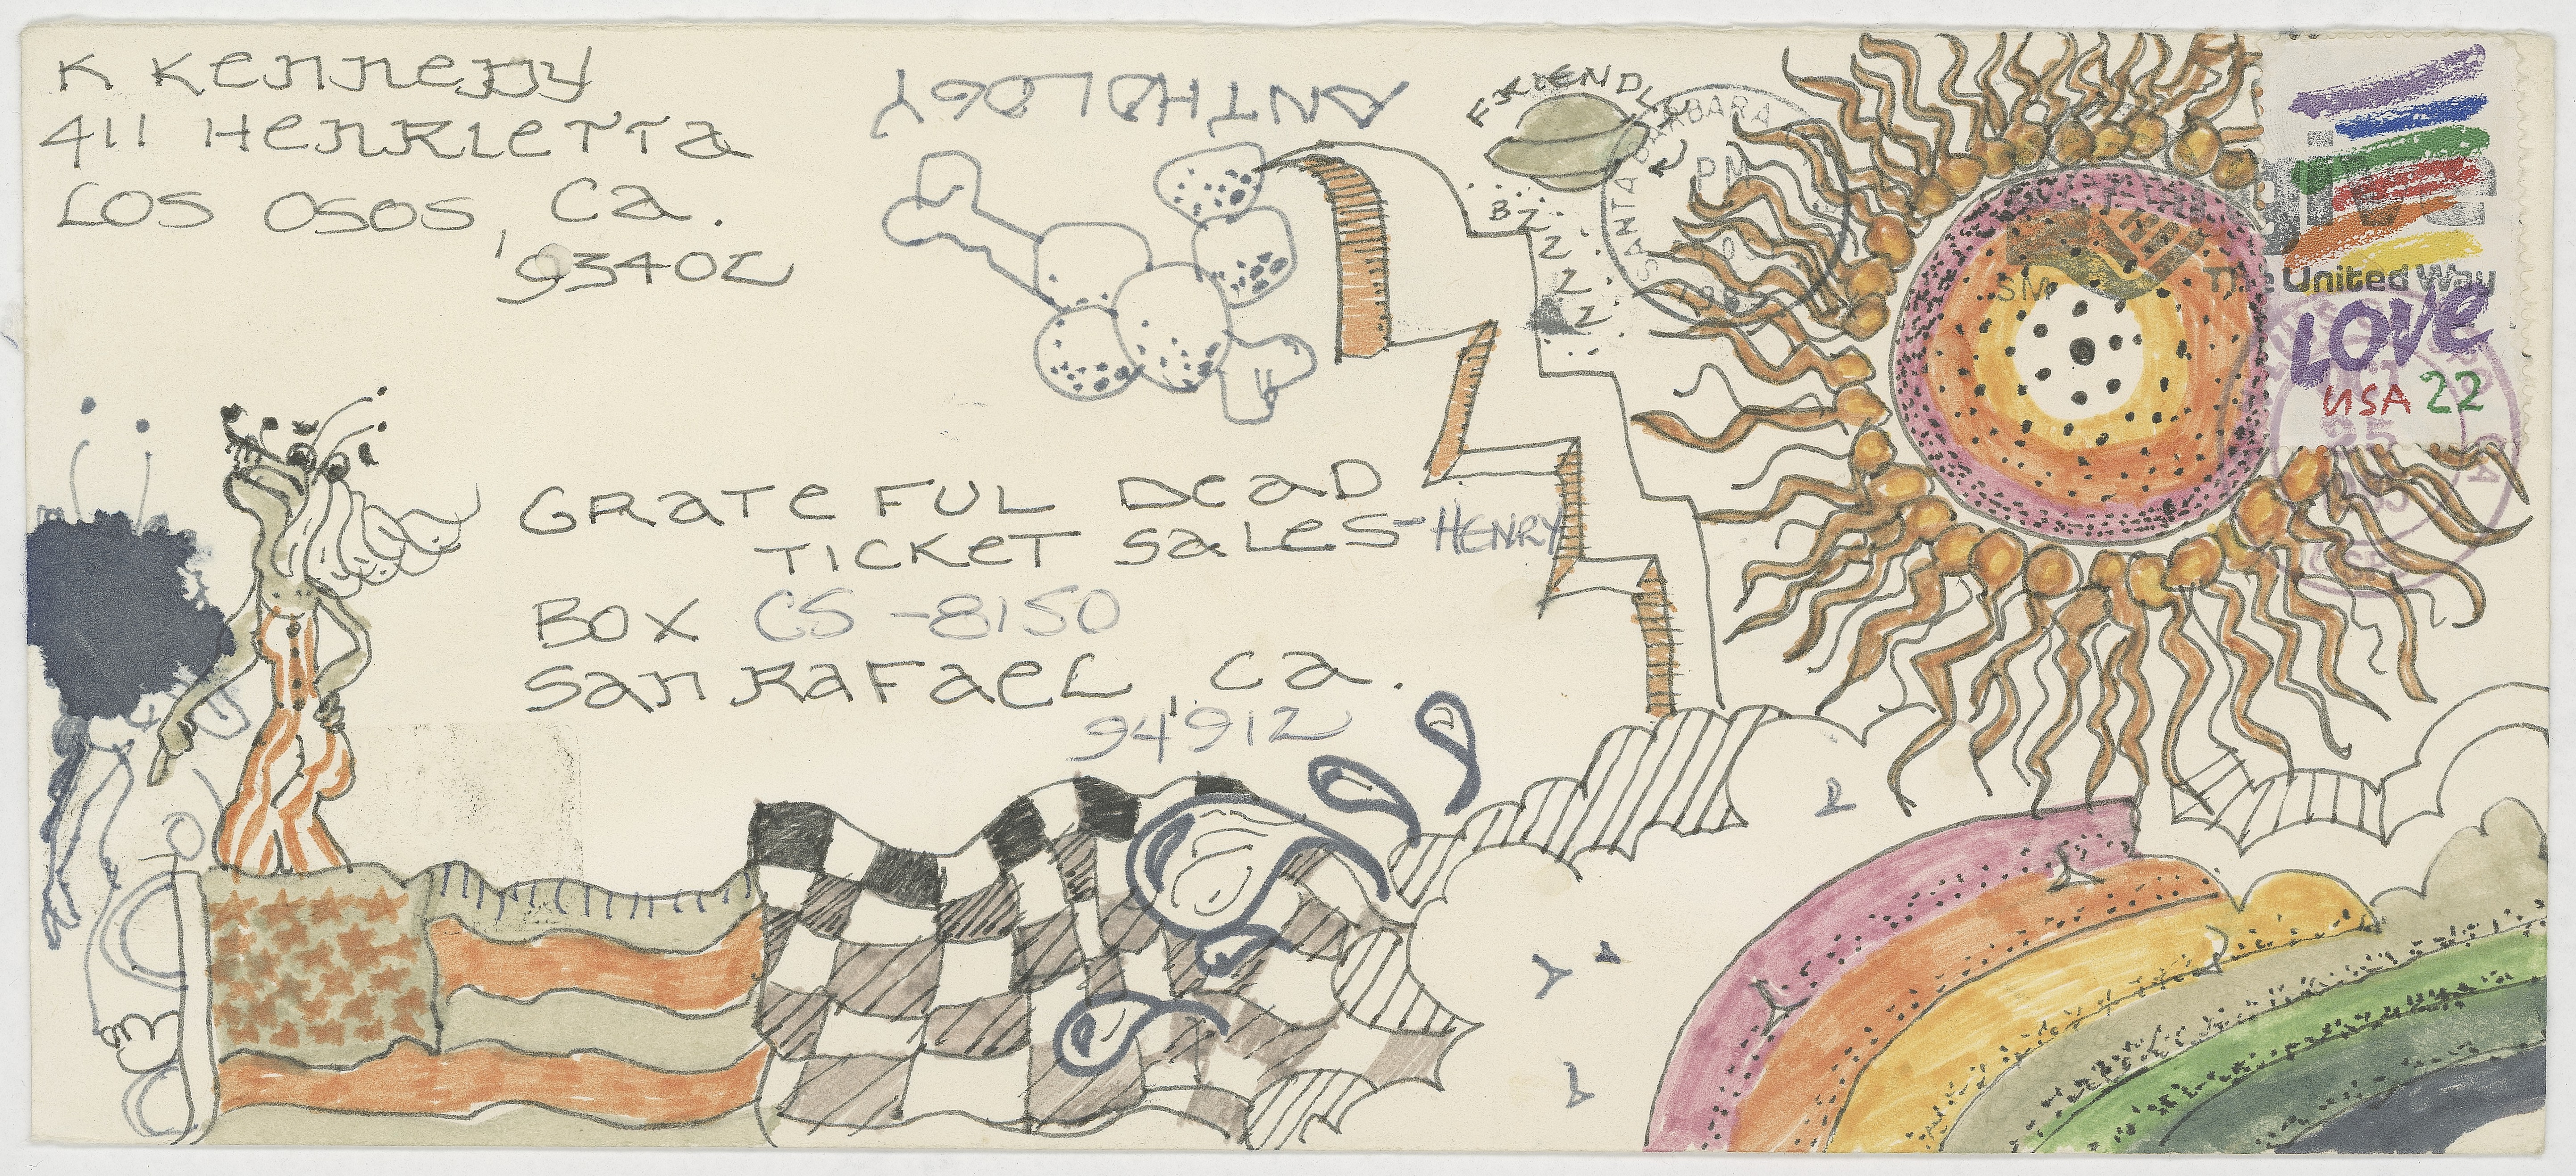 K KENNEDY
411 HENRIETTA
LOS OSOS, CA.
93402
ANTHOLOGY
FRIENDLY
BZ
Z
Z
Z
Z
SANTA BARBARA
PM
The United Way
LOVE
USA 22
OCT
25
GRATEFUL DEAD
TICKET SALES-HENRY
BOX CS-8150
SAN RAFAEL, CA.
94912